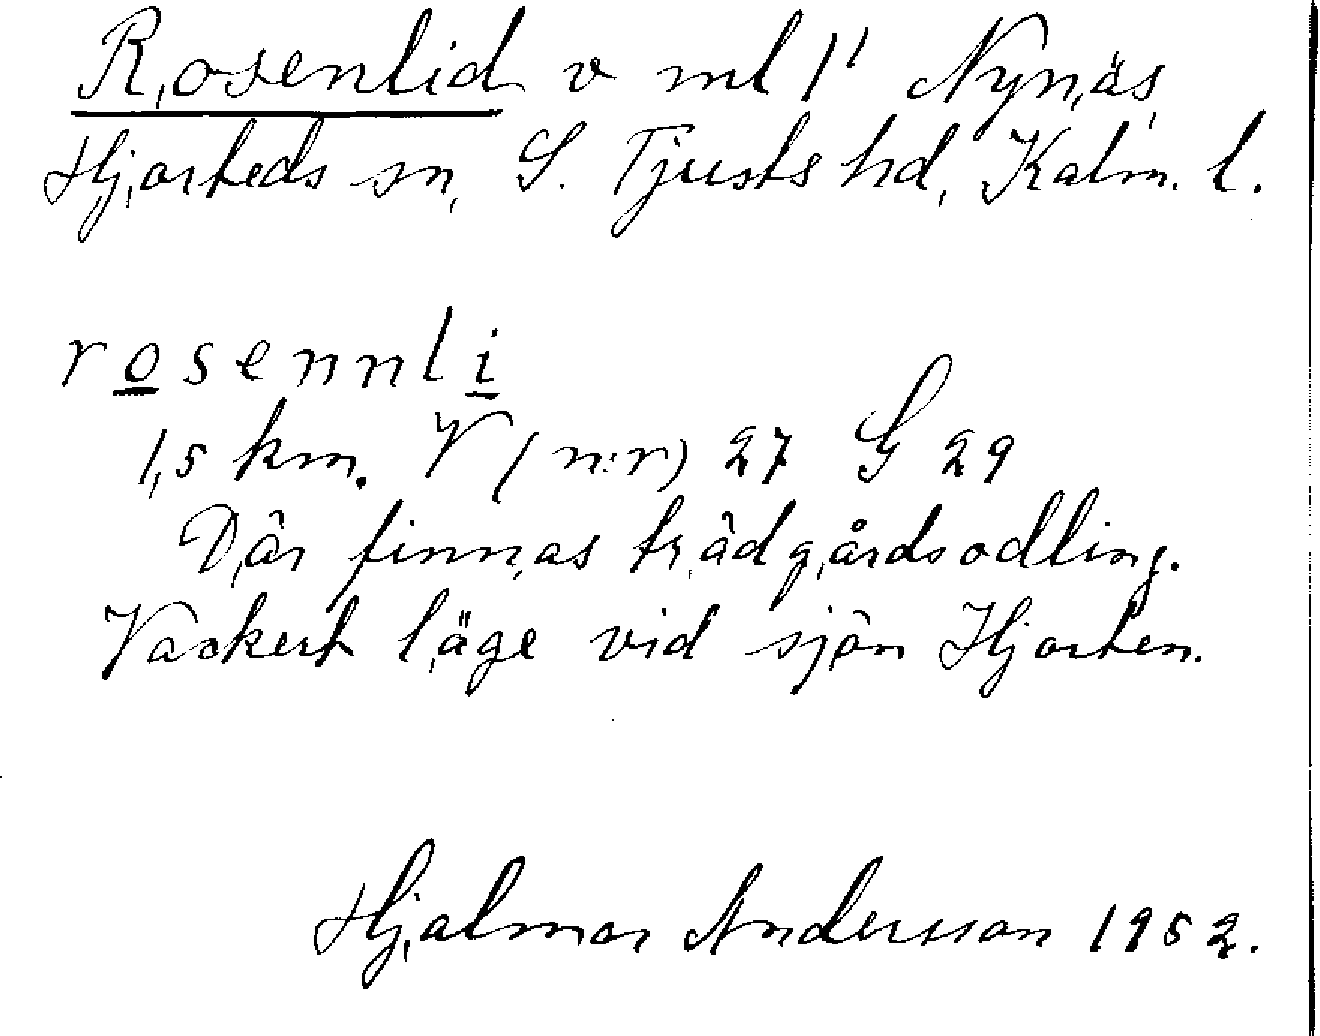 Rosenlid v ml 1' Nynäs,
Hjorteds sn, S. Tjusts hd, Kalm. l.
rosennli
1,5 km. V (n:r) 27 G 29
Där finnas trädgårdsodling.
Vackert läge vid sjön Hjorten.
Hjalmar Andersson 1952.